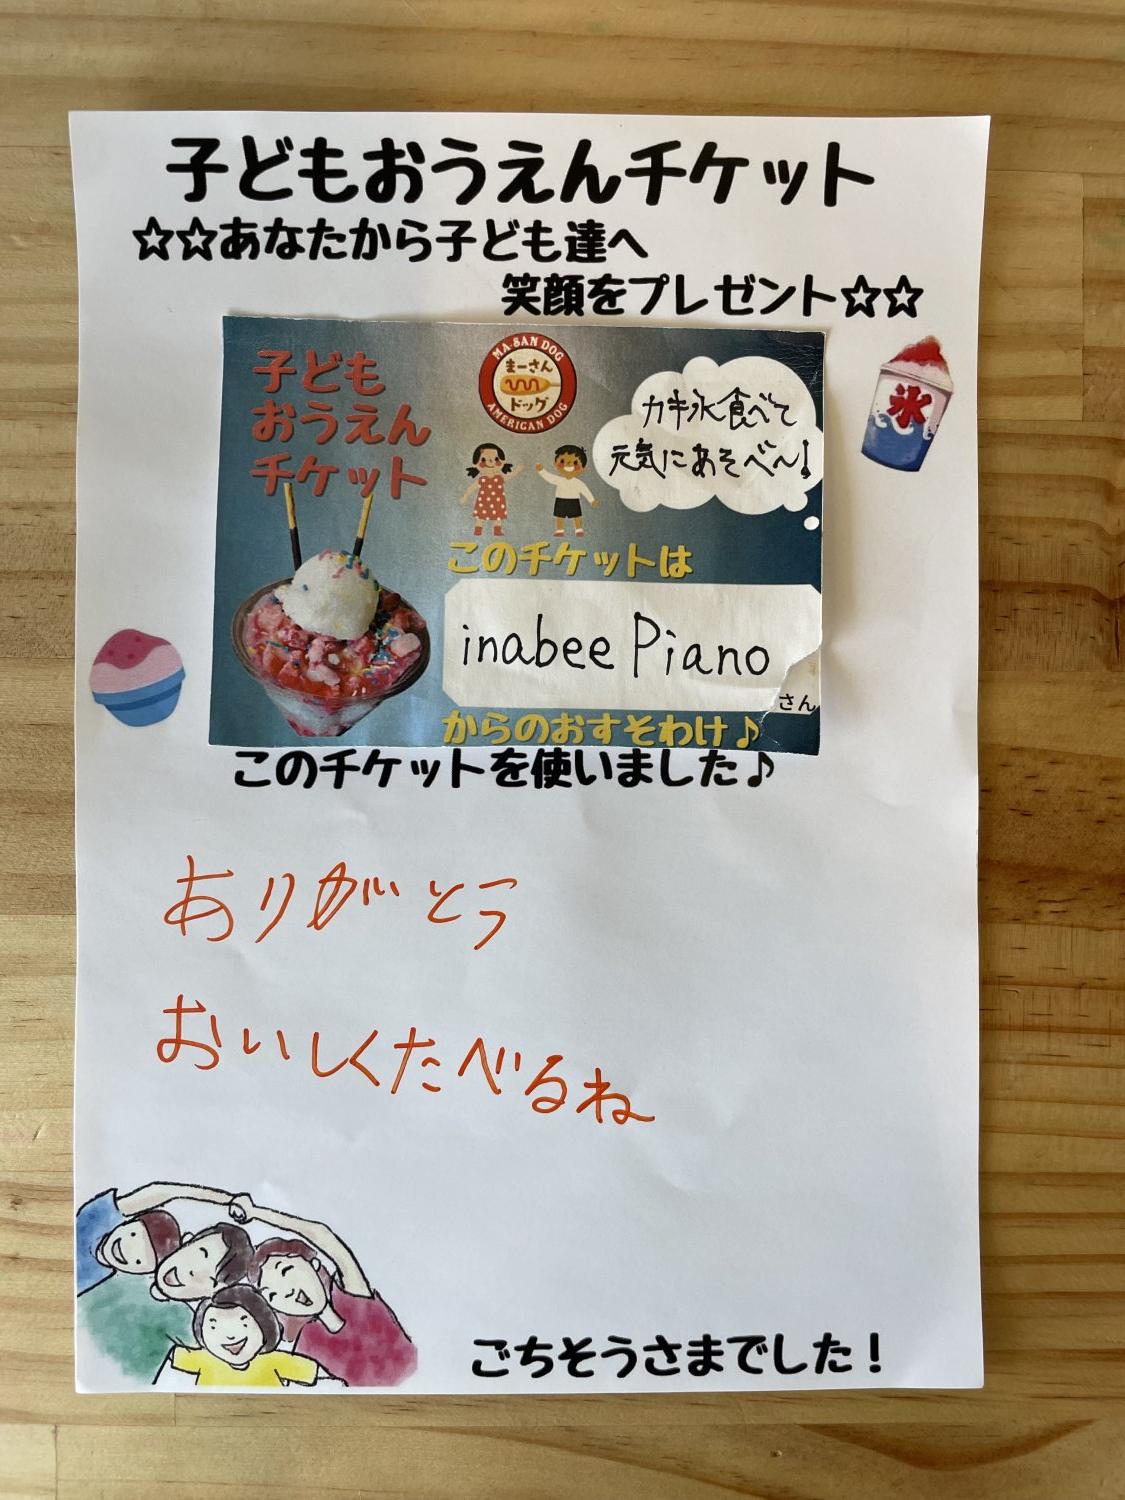 子どもおうえんチケット
☆☆あなたから子ども達へ
笑顔をプレゼント☆☆
子ども
おうえん
チケット
MA-SAN DOG
まーさん
ドッグ
AMERICAN DOG
カキ氷食べて
元気にあそべ〜!
氷
このチケットは
inabee Piano
さん
からのおすそわけ♪
このチケットを使いました♪
ありがとう
おいしくたべるね
ごちそうさまでした!